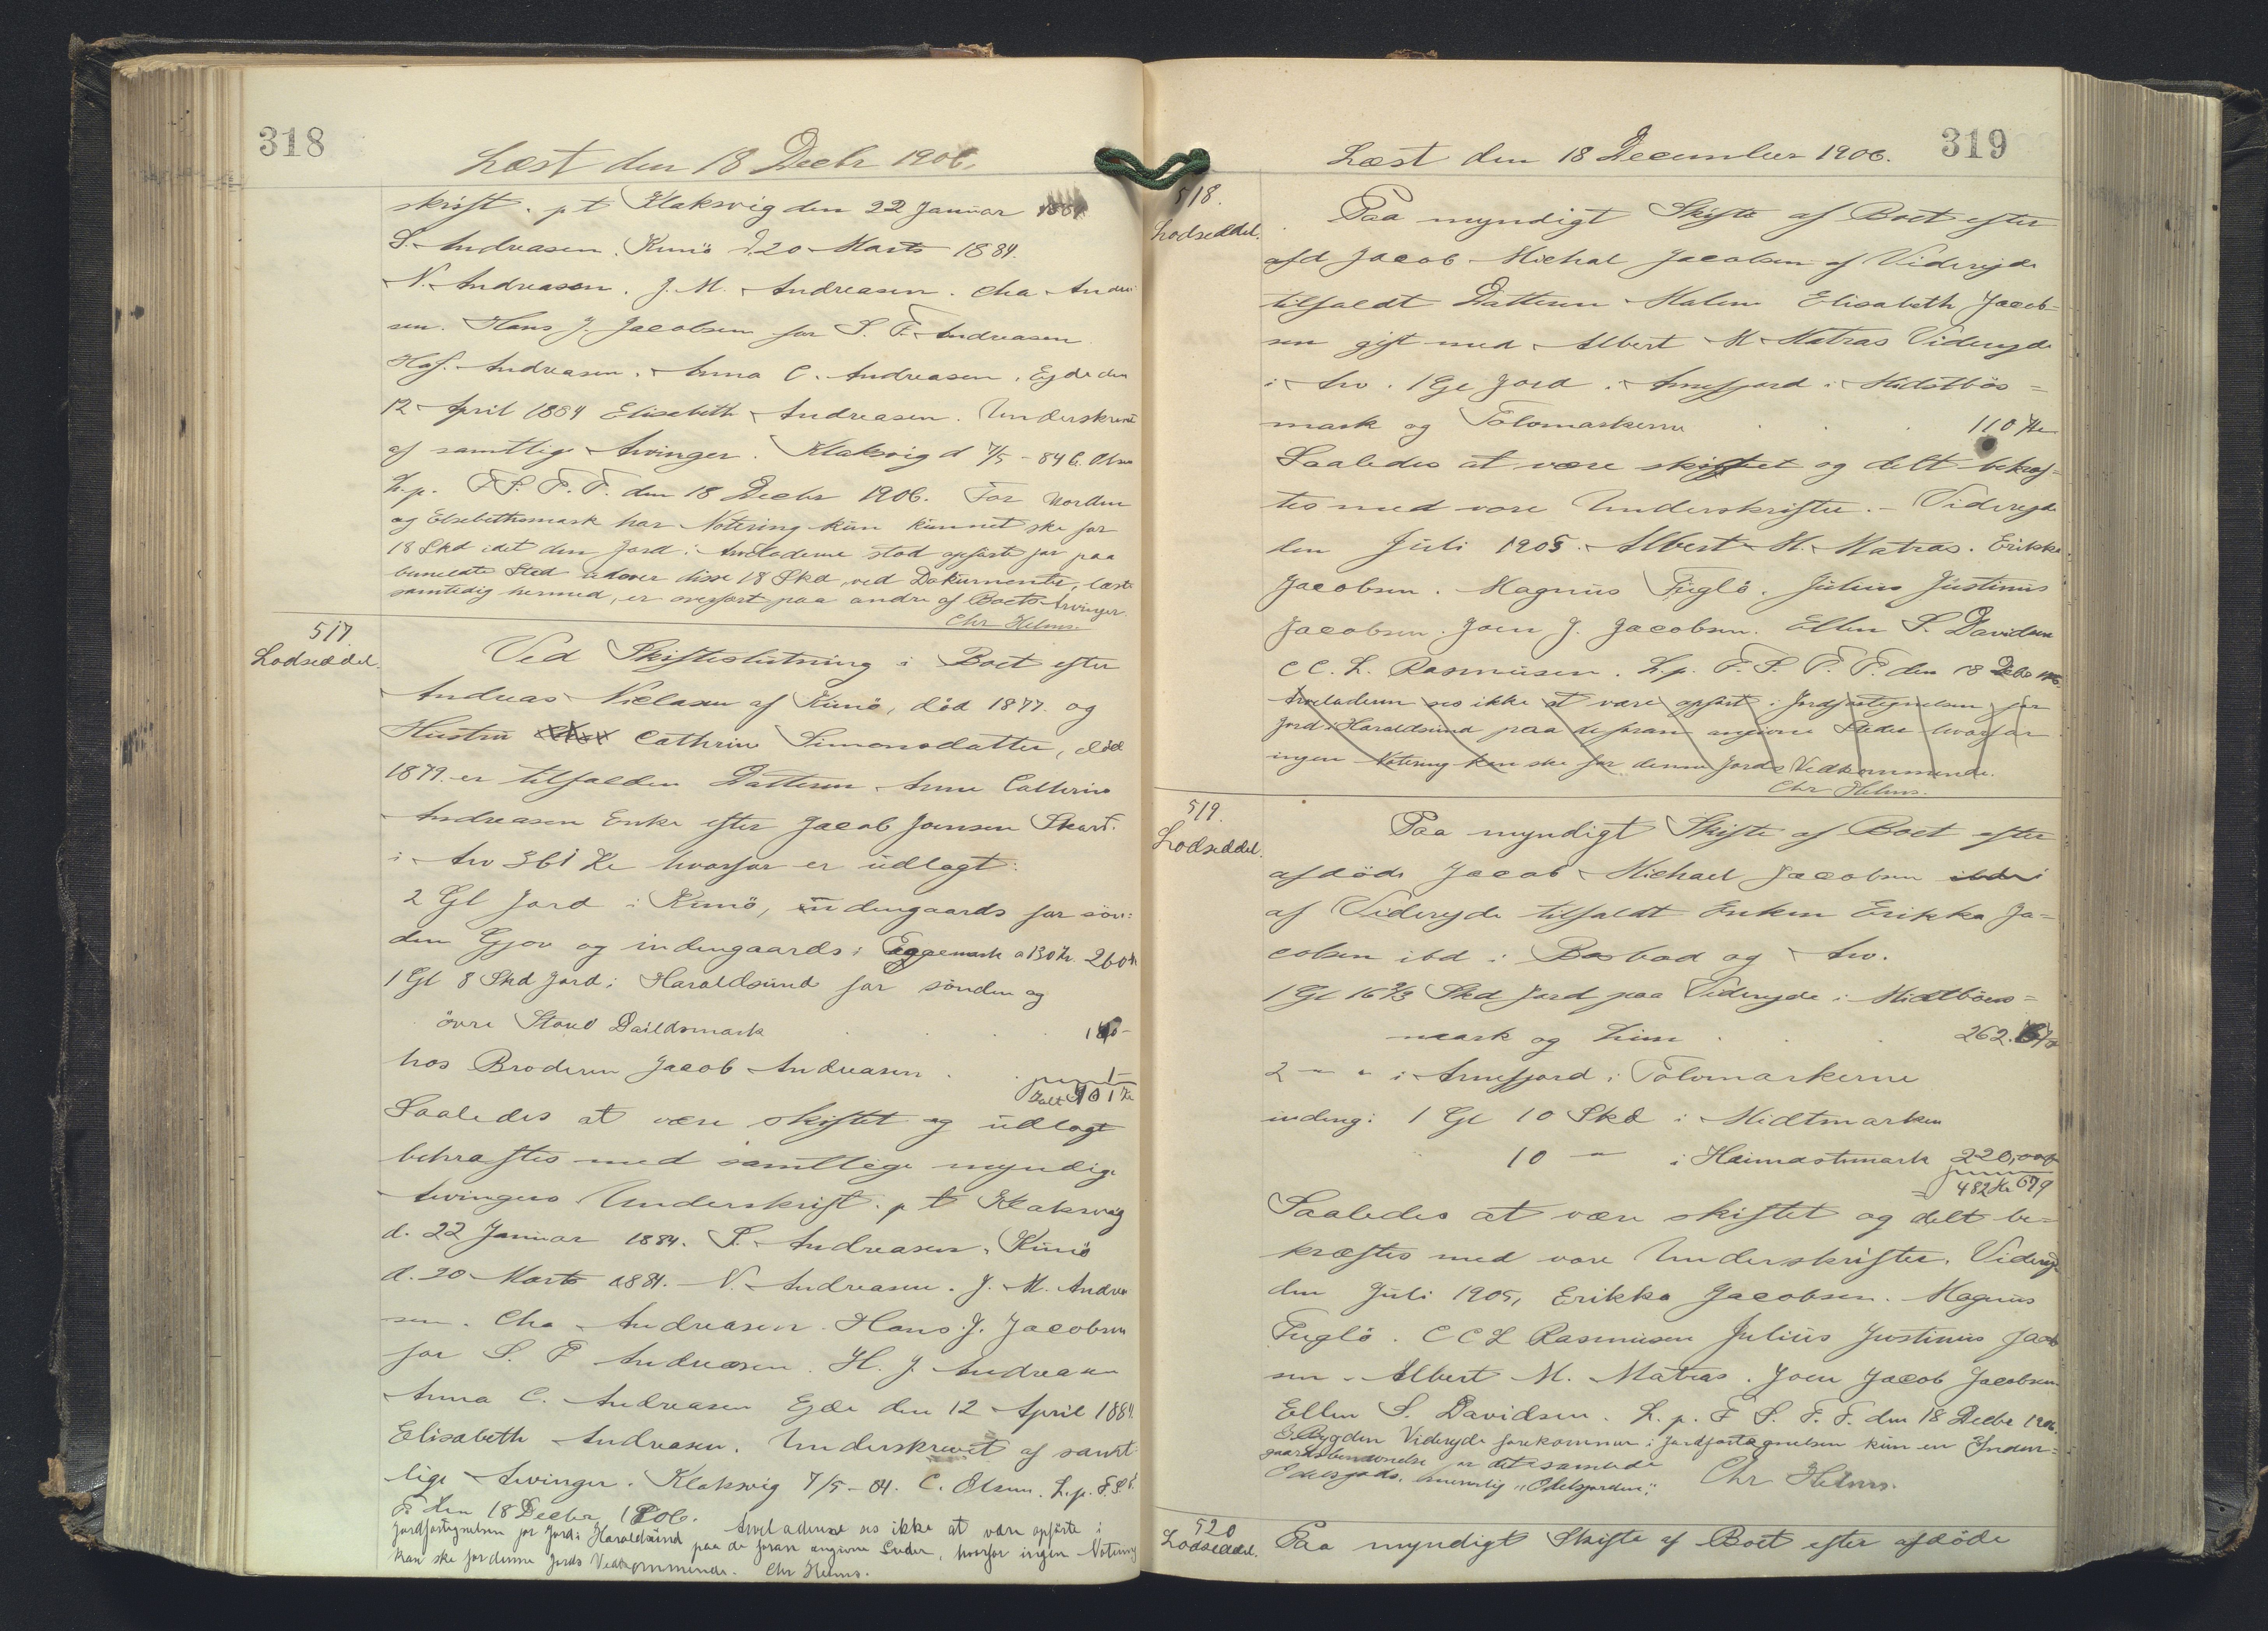 318
Læst den 18 Decbr 1906.
skrift. p t Klaksvig den 22 Januar 1884
S. Andreasen. Kunö d. 20 Marts 1884.
N. Andreasen. J. M. Andreasen. Cha Andrea
sen. Hans J. Jacobsen for S. F. Andreasen
Andreasen. Anna C. Andreasen. Ejde den
12 April 1884 Elisabeth Andreasen. Underskrevet
af samtlige Arvinger. Klaksvig d 7/5 - 84 C. Olsen
L. p. F. S. F. F. den 18 Decbr 1906. For Norden
og Elsebethsmark har Notering kun kunnet ske for
18 Skd idet den Jord i Arveladerne stod opførte for paa
bemeldte Sted udover disse 18 Skd, ved Dokumenter, læst
samtidig hermed, er overført paa andre af Boets Arvinger.
Chr Helms.
517
Lodseddel.
Ved Skifteslutning i Boet efter
Andreas Nielasen af Kunö, död 1877. og
Hustru Cathrine Simonsdatter, död
1879. er tilfalden Datteren Anne Cathrine
Andreasen Enke efter Jacob Joensen Skart.
i Arv 361 Kr hvorfor er udlagt:
2 Gl Jord i Kunö, udengaards for sön=
den Gjov og indengaards i Eggemark a 130 Kr. 260 Kr
1 Gl 8 Skd Jord i Haraldsund for sönden og
övre Stove Daildsmark
hos Broderen Jacob Andreasen . 1-
Ialt 401 Kr
Saaledes at være skiftet og udlagt
bekræftes med samtlige myndige
Arvingers Underskrift. p t Klaksvig
d. 22 Januar 1884. S. Andreasen. Kunö
d. 20 Marts 1884. N. Andreasen. J. M. Andrea
sen. Cha Andreasen. Hans J. Jacobsen
for S. F Andreasen. H. J. Andreasen
Anna C. Andreasen Ejde den 12 April 1884.
Elisabeth Andreasen. Underskrevet af samt=
lige Arvinger. Klaksvig 7/5 - 84. C. Olsen. L. p. F. S. F.
F. den 18 Decbr 1906. Arveladerne ses ikke at være opførte i
Jordfortegnelsen for Jord i Haraldsund paa de foran angivne Steder, hvorfor ingen Notering
kan ske for denne Jords Vedkommende. Chr Helms.
319
Læst den 18 December 1906.
518.
Lodseddel.
Paa myndigt Skifte af Boet efter
afd Jacob Michal Jacobsen af Viderejde
tilfaldt Datteren Malene Elisabeth Jacob=
sen gift med Albert M Matras Viderejde
i Arv. 1 Gl Jord i Arnefjord i Midtbös=
mark og Tolvmarkerne . . . 110 Kr
Saaledes at være skiftet og delt bekræf=
tes med vore Underskrifter. - Viderejde
den Juli 1905. Albert M. Matras. Erikka
Jacobsen. Magnus Fuglö. Julius Justinus
Jacobsen. Joen J. Jacobsen. Ellen S. Davidsen
C C. L. Rasmussen. L. p. F. S. F. F. den 18 Decbr 1906.
Arveladeren ses ikke at være opført i Jordfortegnelsen for
Jord i Haraldsund paa de foran angivne Steder hvorfor
ingen Notering kan ske for denne Jords Vedkommende.
Chr Helms.
519.
Lodseddel.
Paa myndigt Skifte af Boet efter
afdöde Jacob Michael Jacobsen
af Viderejde tilfaldt Enken Erikka Ja=
cobsen ibd i Bosbod og Arv.
1 Gl 16 2/3 Skd Jord paa Viderejde i Midtböens=
mark og Lien . . 262.67
2 - " i Arnefjord i Tolvmarkerne
indeng: 1 Gl 10 Skd i Midtmarken
10 - i Heimastemark 220,00
= 482 Kr 67
Saaledes at være skiftet og delt be=
kræftes med vore Underskrifter. Viderejde
den Juli 1905, Erikka Jacobsen. Magnus
Fuglö. C C L Rasmussen Julius Justinus Jacob
sen. Albert M. Matras. Joen Jacob Jacobsen
Ellen S. Davidsen. L. p. F S. F. F. den 18 Decbr 1906.
I Bygden Viderejde forekommer i Jordfortegnelsen kun en Inden=
gaardsbenævnelse for det samlede
Odelsjords, nemlig "Odelsjorden". Chr Helms.
520
Lodseddel.
Paa myndigt Skifte af Boet efter afdöde